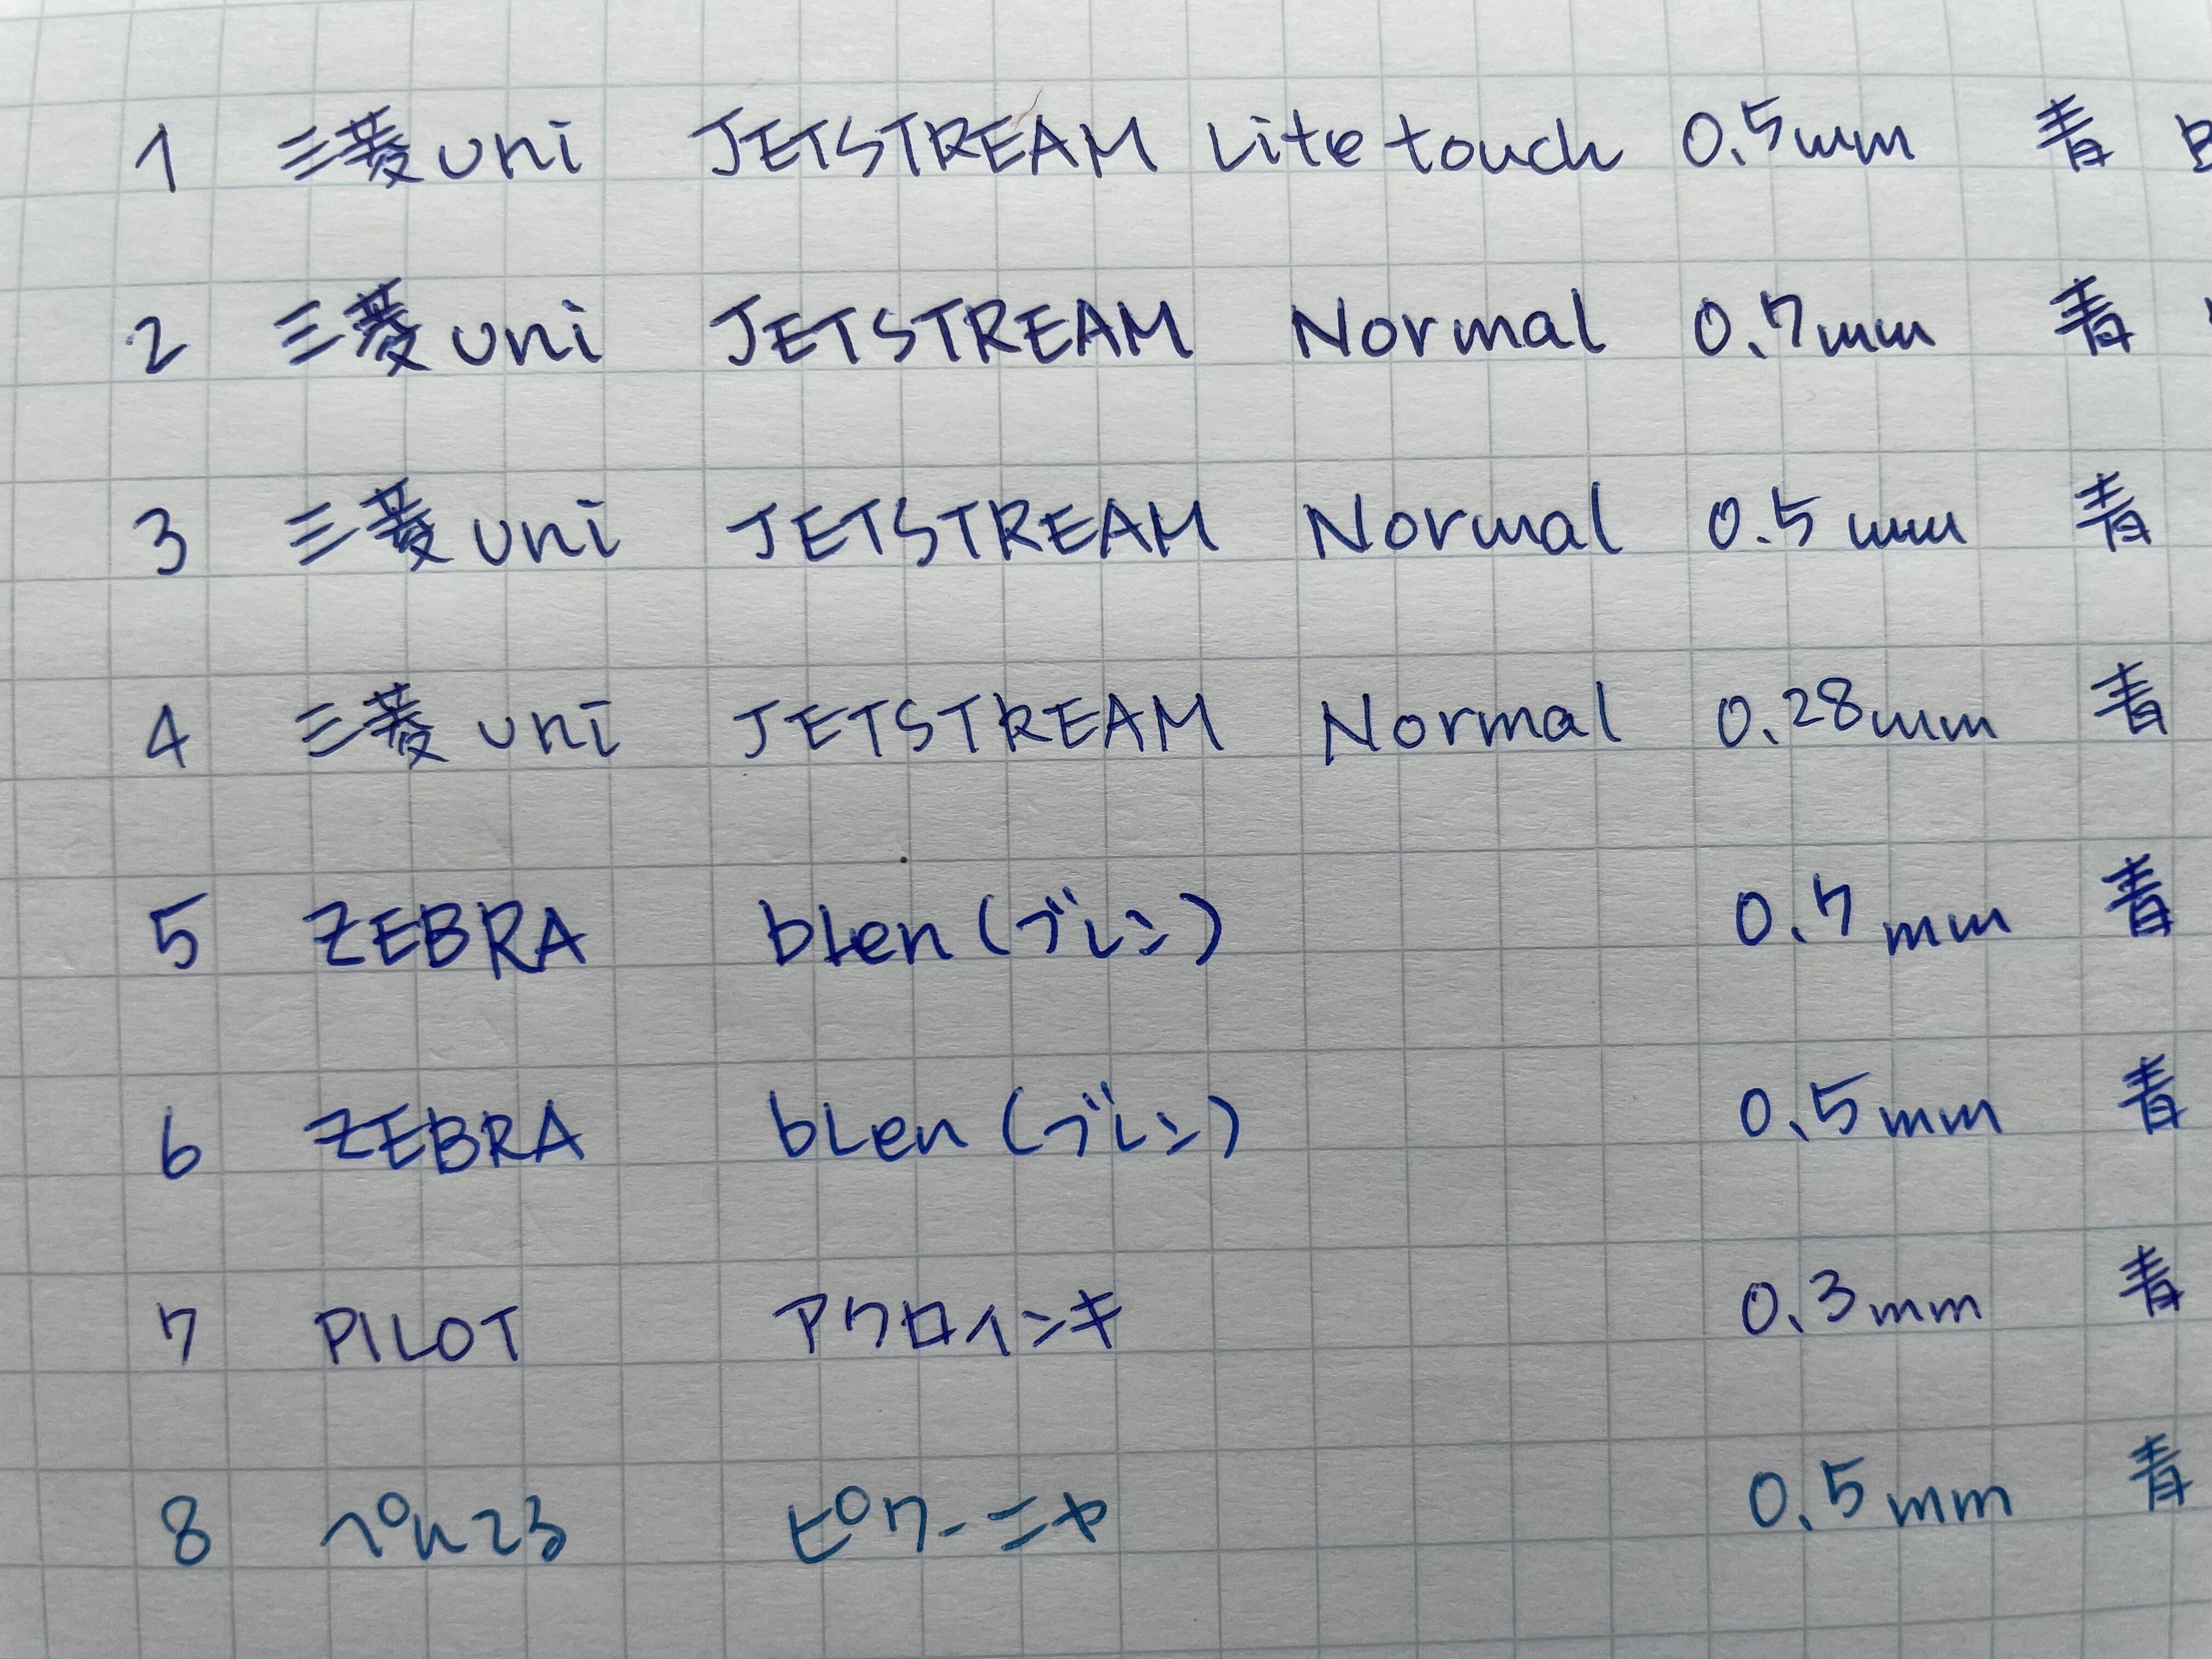 1 三菱uni JETSTREAM Lite touch 0.5mm 青
2 三菱uni JETSTREAM Normal 0.7mm 青
3 三菱uni JETSTREAM Normal 0.5mm 青
4 三菱uni JETSTREAM Normal 0.28mm 青
5 ZEBRA bLen(ブレン) 0.7mm 青
6 ZEBRA bLen(ブレン) 0.5mm 青
7 PILOT アクロインキ 0.3mm 青
8 ぺんてる ピクーニャ 0.5mm 青